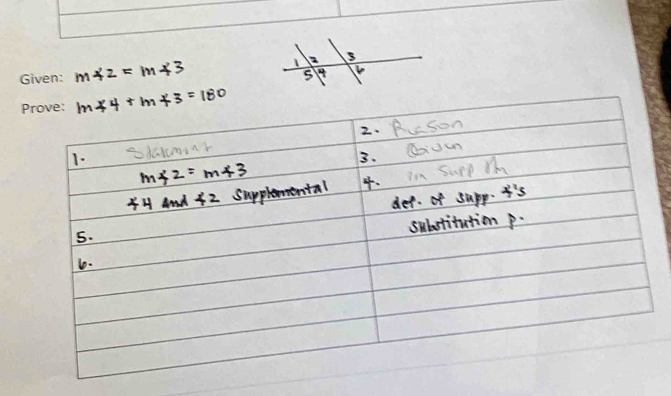 Given: m∡2 = m∡3
1 2 3
5 4 6
Prove: m∡4 + m∡3 = 180
1. Statement 2. Reason
m∡2 = m∡3 3. Given
∡4 and ∡2 supplemental 4. lin supp th
def. of supp. ∡'s
5. substitution p.
6.